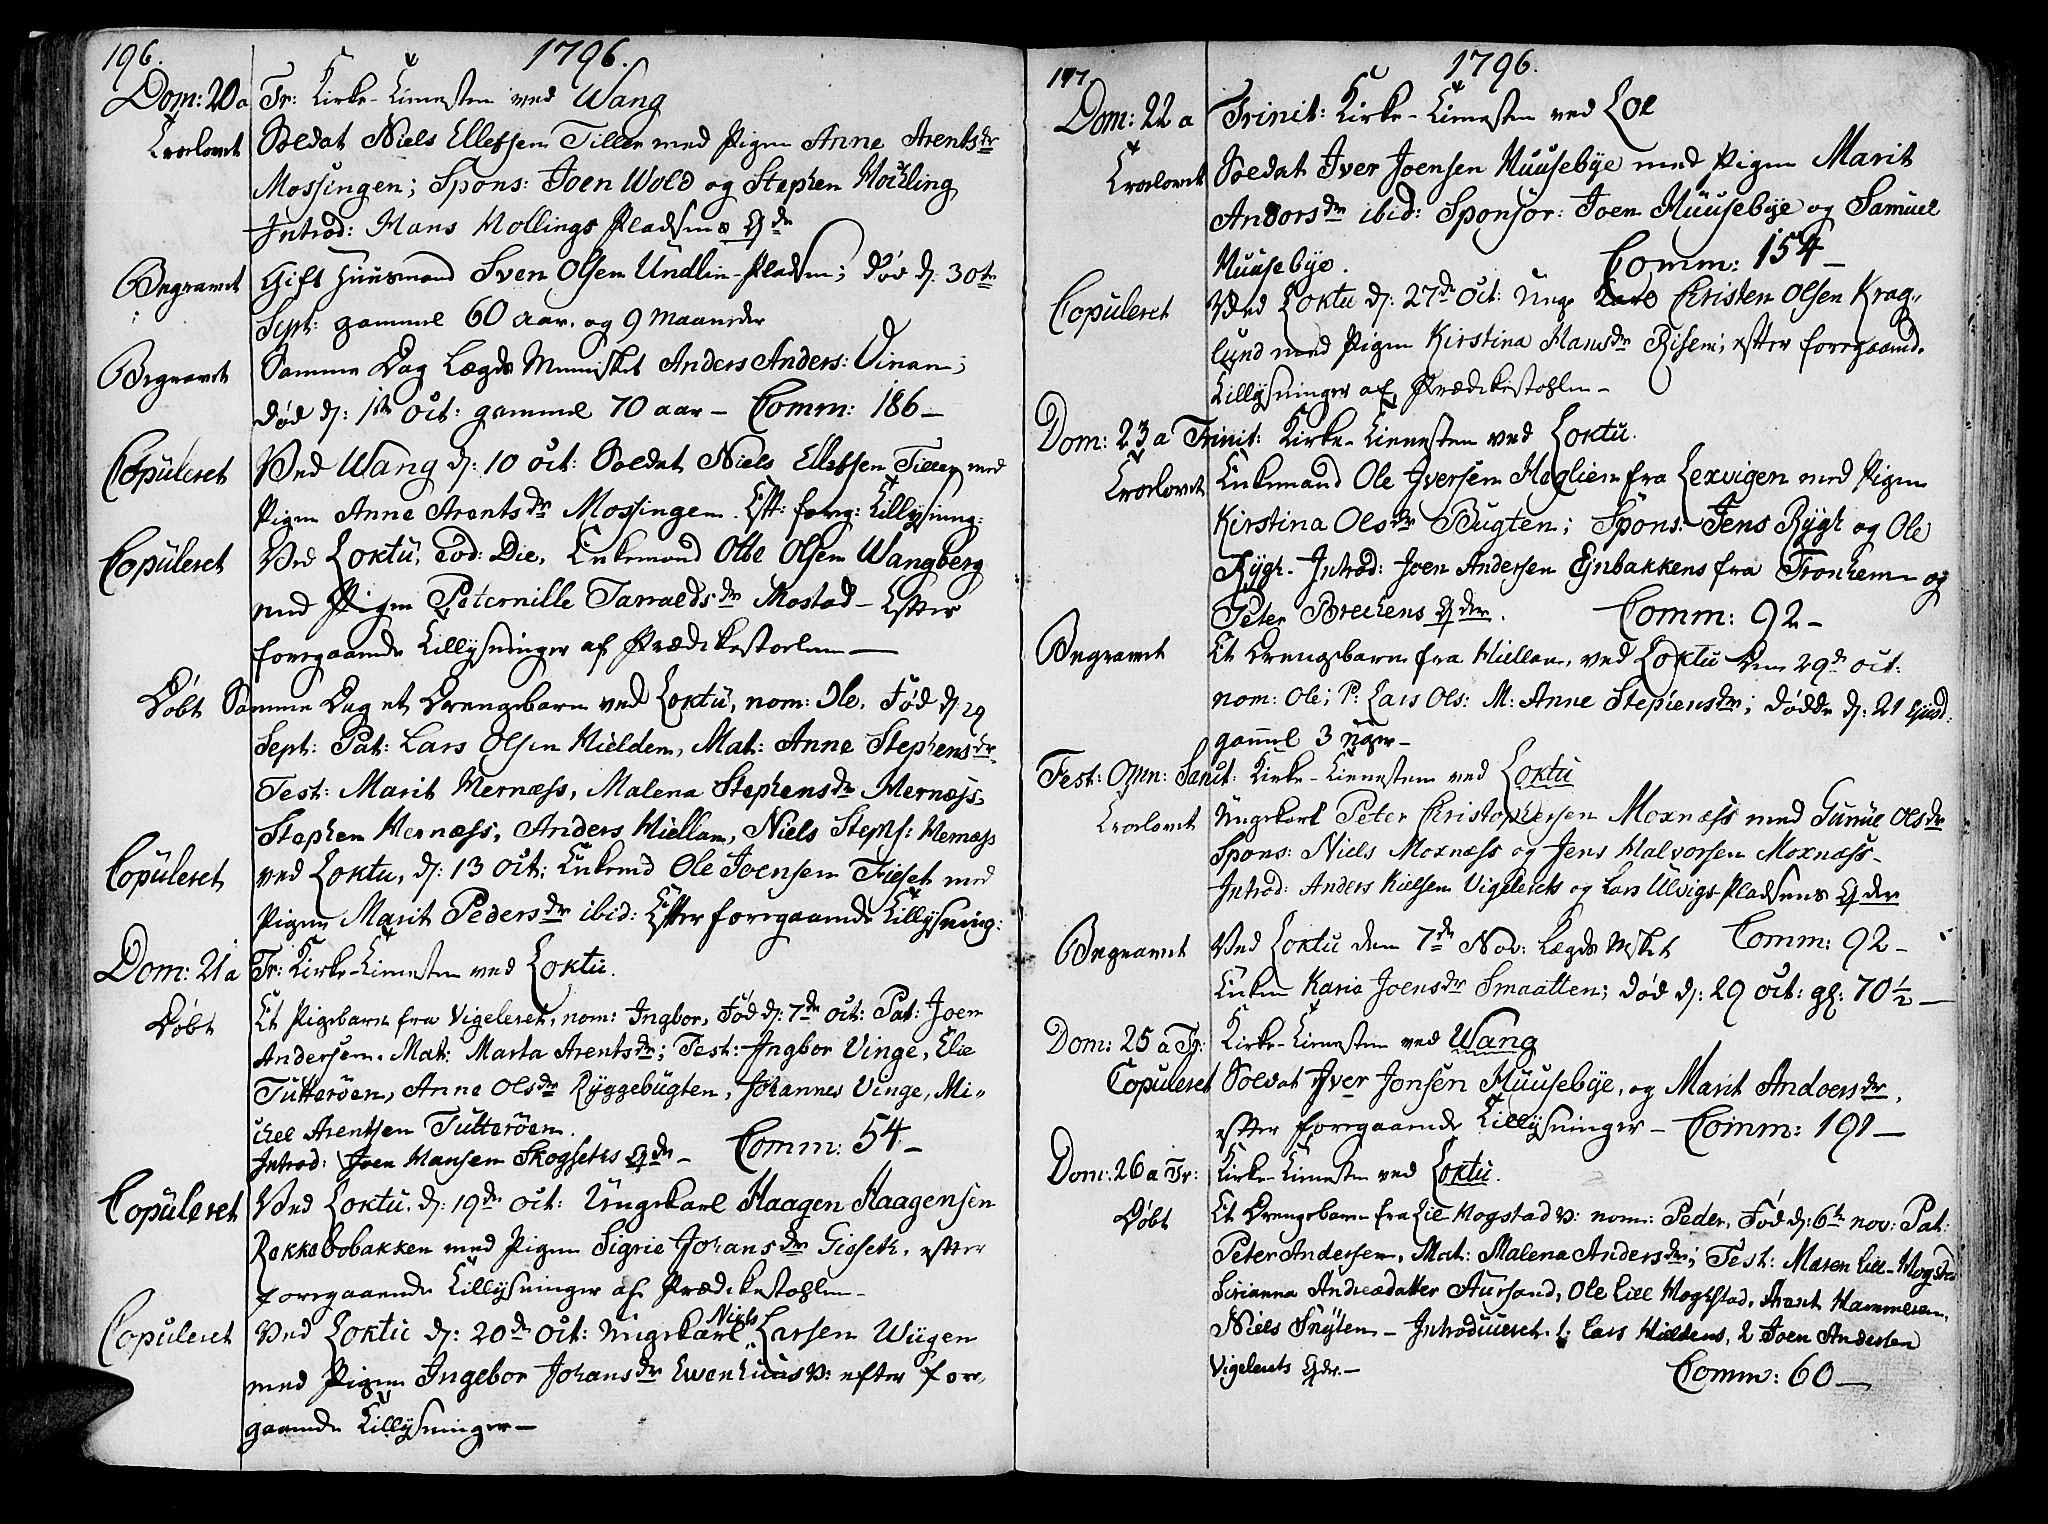 196.
1796.
Dom: 20 a Tr: Kirke-Tienesten ved Wang
Trolovet Soldat Niels Ellefsen Tiller med Pigen Anne Arentsdr
Mossingen; Spons: Joen Wold og Stephen
Introd: Hans Hollings Pladsens Qde
Begravet Gift Huusmand Sven Olsen Undlin-Pladsen; død d: 30te
Sept: gammel 60 aar. og 9 Maaneder
Begravet Samme Dag Lægds Mennisket Anders Anders: Vinan;
død d: 1ste Oct: gammel 70 aar – Comm: 186 –
Copuleret Ved Wang d: 10 Oct: Soldat Niels Ellefsen Tiller med
Pigen Anne Arentsdr Mossingen. Eft: forg: Tillysning:
Copuleret Ved Loktu, Eod: Die, Enkemand Otte Olsen Wangberg
med Pigen Peternille Tarraldsdr Mostad – Efter
foregaaende Tillysninger af Prædikestoelen —
Døbt Samme Dag et Drengebarn ved Loktu, nom: Ole. Fød d: 29
Sept: Pat: Lars Olsen Hieldem, Mat: Anne Stephensdr.
Test: Marit Hernæss, Malena Stephensdr Hernæss,
Stephen Hernæss, Anders Hiellan, Niels Steph: Hernæss
Copuleret ved Loktu, d: 13 Oct: Enkemd Ole Joensen Fieset med
Pigen Marit Pedersdr ibid: Efter foregaaende Tillysning:
Dom: 21 a Tr: Kirke-Tienesten ved Loktu.
Døbt Et Pigebarn fra Vigeleret, nom: Ingbor, Fød d: 7de Oct: Pat: Joen
Andersen. Mat: Marta Arentsdr; Test: Ingbor Vinge, Elie
Tutterøen, Anne Olsdr Ryggebugten, Johannes Vinge, Mi-
chel Arentsen Tutterøen.
Introd: Joen Hansen Skogseths Qde – Comm: 54 –
Copuleret Ved Loktu. d: 19de Oct: Ungekarl Haagen Haagensen
Rekkebobakken med Pigen Sigrie Johansdr Gieseth, efter
foregaaende Tillysninger af Prædikestohlen –
Niels
Copuleret Ved Loktu d: 20de Oct: Ungekarl Larsen Wigen
med Pigen Ingebor Johansdr Ewenhuus V: efter fore-
gaaende Tillysninger –
197
1796.
Dom: 22 a Trinit: Kirke-Tienesten ved Loe
Trolovet Soldat Iver Joensen Huusebye med Pigen Marit
Andorsdr ibid: Sponsor: Joen Huusebye og Samuel
Huusebye. Comm: 154 –
Copuleret Ved Loktu d: 27de Oct: Unge Karl Christen Olsen Krag-
lund med Pigen Kirstina Hansdr Risem, efter foregaaend.
Tillysninger af Prædikestohlen –
Dom: 23 a Trinit: Kirke-Tienesten ved Loktu.
Trolovet Enkemand Ole Iversen Haglien fra Lexvigen med Pigen
Kirstina Olsdr Bugten; Spons: Jens Rygh og Ole
Rygh – Introd: Joen Andersen Ejnbakkens fra Tronhem og
Peter Brechens Qder. Comm: 92 –
Begravet Et Drengebarn fra Hiellan, ved Loktu Den 29de Oct:
nom: Ole; P: Lars Ols: M: Anne Stephensdr; dødde d: 21 Ejusd:
gamel 3 uger –
Fest: Omn: Sanct: Kirke-Tienesten ved Loktu
Trolovet Ungekarl Peter Christophersen Moxnæss med Gunnil Olsdr
Spons: Niels Moxnæss og Jens Halvorsen Moxnæss –
Introd: Anders Kielsen Vigelerets og Lars Ulvigs Pladsens Qder
Begravet Ved Loktu den 7de Nov: Lægds Msket Comm: 92 –
Enken Karis Joensdr Smaatten; død d: 29 Oct: gl: 70 ½ —
Dom: 25 a Tr: Kirke-Tienesten ved Wang
Copuleret Soldat Iver Jonsen Huusebye, og Marit Andoersdr,
efter foregaaende Tillysninger – Comm: 191 —
Dom: 26 a Tr: Kirke-Tienesten ved Loktu.
Døbt Et Drengebarn fra Lil Hogstad V: nom: Peder, Fød d: 6te nov: Pat:
Peter Andersen, Mat: Malena Andersdr; Test: Maren Lill-Hogstad
Sirianna Andreasdatter Aursand, Ole Lill Hoghstad, Arent Hammeren,
Niels Snøten – Introduceret. 1: Lars Hieldens, 2 Joen Andersen
Vigelerets Qdr. – Comm: 60 —